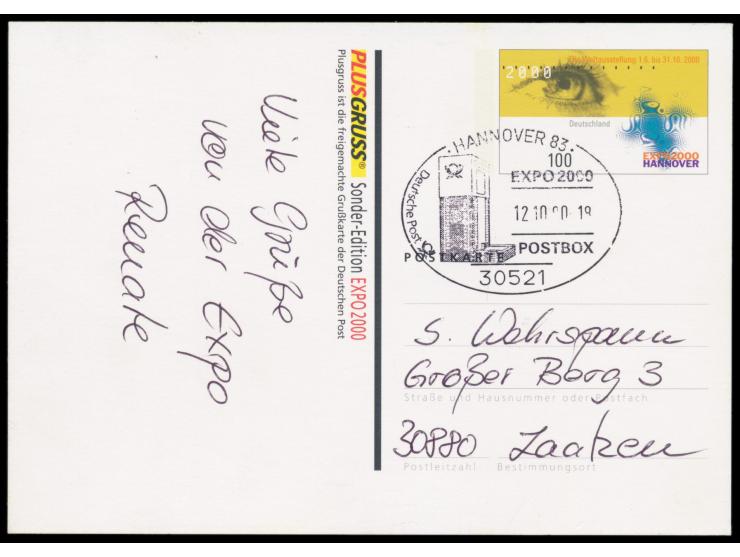 Viele Grüße
von der Expo
Renate
PLUSGRUSS® Sonder-Edition EXPO 2000
Plusgruss ist die freigemachte Grußkarte der Deutschen Post
Die Weltausstellung 1.6. bis 31.10. 2000
2000
Deutschland
EXPO2000
HANNOVER
· HANNOVER 83 ·
100
EXPO 2000
Deutsche Post
12.10.00-19
POSTBOX
POSTKARTE
30521
S. Wehrspann
Großer Berg 3
Straße und Hausnummer oder Postfach
30880 Laatzen
Postleitzahl Bestimmungsort